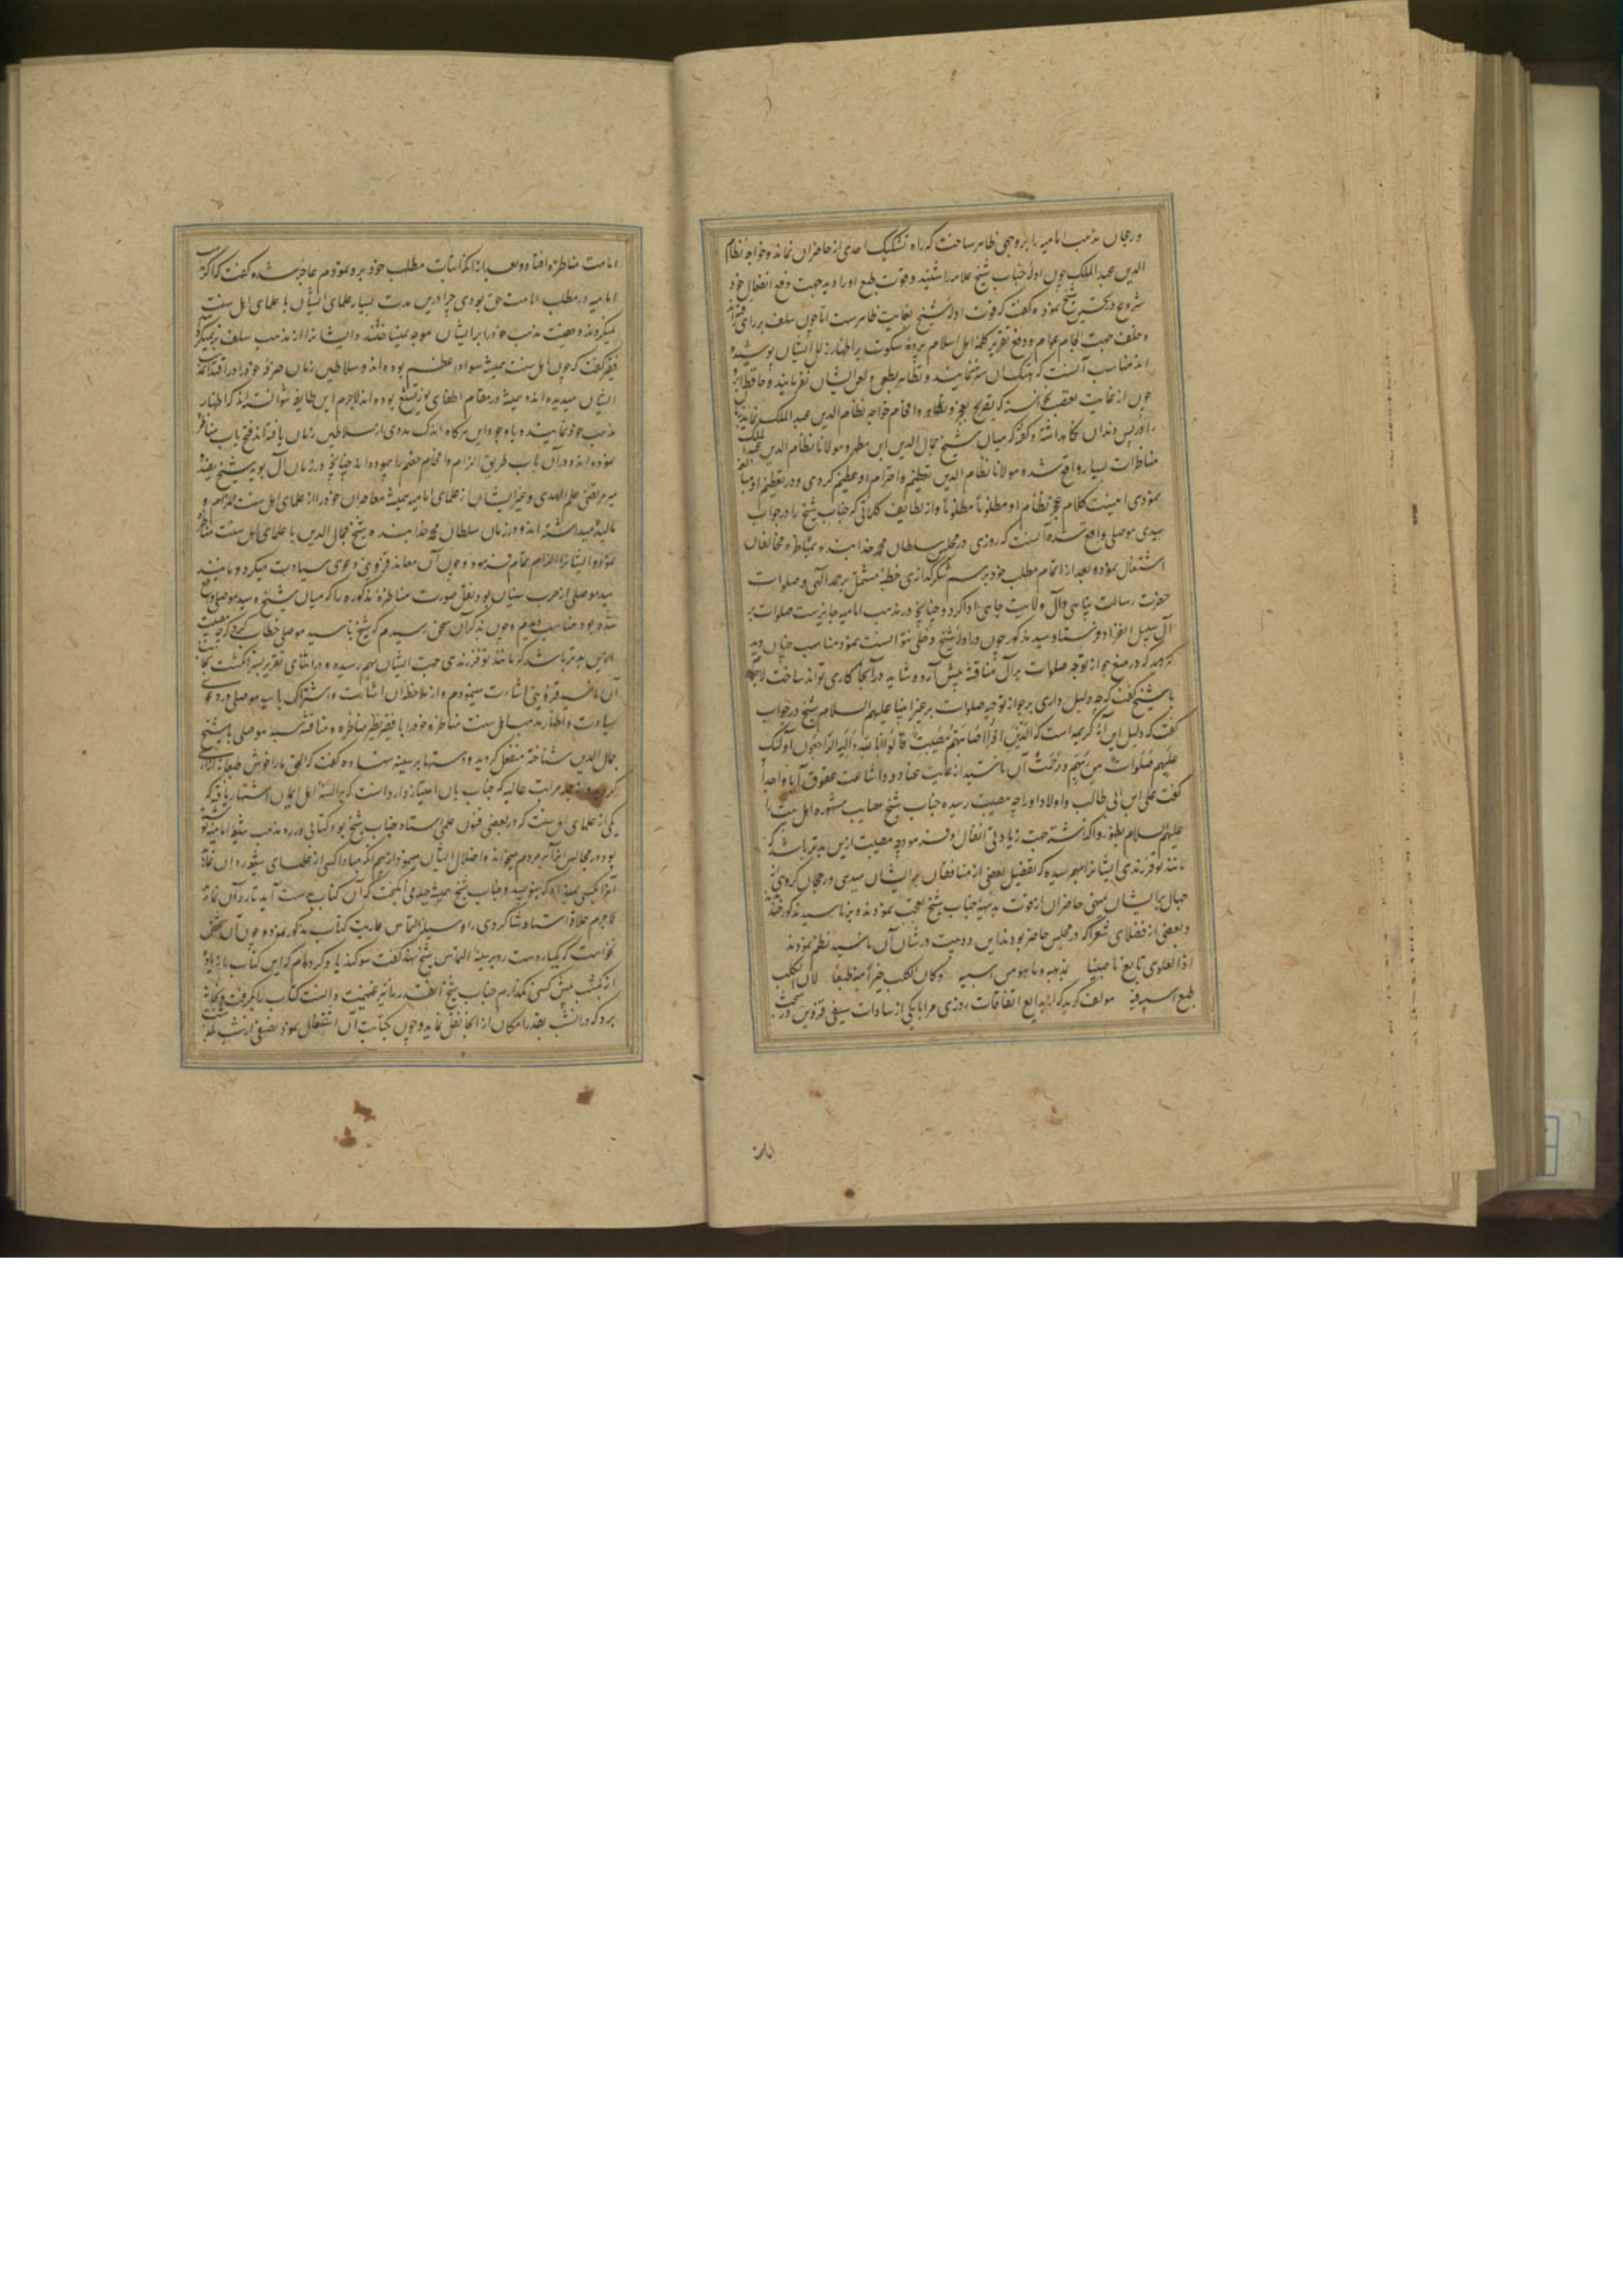 ورجحان مذهب امامیه را بروجهی ظاهر ساخت که راه تشکیک احدی از حاضران نماند و خواجه نظام
الدین عبد الملک چون ادلهٔ جناب شیخ علامه را شنید و قوت طبع او را دید جهت دفع انفعال خود
شروع در تحسین شیخ نموده گفت که قوت ادلهٔ شیخ بغایت ظاهرست اما چون سلف بر راهی رفته‌اند
و خلف جهت الجام عوام و دفع تفرق کلمهٔ اهل اسلام پردهٔ سکوت بر اظهار زلل ایشان پوشیده
اند مناسب آنست که هتک آن ستر ننمایند و تظاهر بطعن و لعن ایشان نفرمایند و حافظ ابرو
چون از غایت تعصب نخواسته که تصریح بعجز و افحام خواجه نظام الدین عبد الملک نماید
پس دندان نگاه داشته و گفته که میان شیخ جمال الدین ابن مطهر و مولانا نظام الدین عبد الملک
مناظرات بسیار واقع شد و مولانا نظام الدین تعظیم و احترام او عظیم کردی و در تعظیم او مبالغه
نمودی و از لطایف کلماتی که جناب شیخ را در جواب
سیدی موصلی واقع شده آنست که روزی در مجلس سلطان محمد خدابنده بمناظره مخالفان
اشتغال نموده بعد از اتمام مطلب خود برسم شکرگذاری خطبهٔ مشتمل بر حمد الهی و صلوات
حضرت رسالت پناهی و آل ولایت جاهی ادا کرد و چنانچه در مذهب امامیه جایزست صلوات بر
آل بسبیل انفراد فرستاد و سید مذکور چون در ادلهٔ شیخ دخلی نتوانست نمود مناسب چنان دید
که در منع جواز توجه صلوات بر آل مناقشه پیش آرد و شاید در آنجا کاری تواند ساخت لاجرم
با شیخ گفت که چه دلیل داری بر جواز توجیه صلوات بر غیر انبیا علیهم السلام شیخ در جواب
گفت که دلیل این آیهٔ کریمه است که الَّذین اذا اصابتهم مصیبة قالوا انا لله و انا الیه راجعون اولئک
علیهم صلوات من ربهم و رحمة آن ناسید از غایت عناد و اشاعت عقوق آبا و اجداد
گفت علی ابن ابی طالب و اولاد او را چه مصیبت رسیده جناب شیخ مصایب مشهوره اهل بیت را
علیهم السلام بظهور واگذاشته جهت زیادتی انفعال او فرمود چه مصیبت ازین بدتر باشد که
مانند تو فرزندی ایشان را بهم رسیده که تفضیل بعضی از منافقان بر ایشان میدهی و رجحان گروهی
جهال بر ایشان می‌نهی حاضران از قوت بدیههٔ جناب شیخ تعجب نمودند و بر ناسید مذکور خندیدند
و بعضی از فضلای شعرا که در مجلس حاضر بودند این دو بیت در شأن آن ناسید نظم نمودند
اذا العلوی تابع ناصبیا بمذهبه و ما هو من ابیه و کان الکلب خیراً منه طبعا لان الکلب
طبع ابیه فیه مولف گوید که از بدایع اتفاقات روزی مرا با یکی از سادات سیفی قزوین در بحث
امامت
امامت مناظره افتاد و بعد از آنکه اثبات مطلب خود برو نمودم عاجز شده گفت که اگر مذهب
امامیه در مطلب امامت حق بودی چرا درین مدت بسیار علمای ایشان با علمای اهل سنت
نمیکردند و حقیت مذهب خود را بر ایشان موجه نمیساختند و ایشان را از مذهب سلف
فقیر گفت که چون اهل سنت همیشه سواد اعظم بوده‌اند و سلاطین زمان صرفهٔ خود را در اقتدا
ایشان میدیده‌اند و همیشه در مقام اطفای نور تشیع بوده‌اند لاجرم این طایفه نتوانسته‌اند که اظهار
مذهب خود نمایند و با وجود این هرگاه اندک مددی از سلاطین زمان یافته‌اند فتح باب مناظره
نموده‌اند و در آن باب طریق الزام و افحام خصم پیموده‌اند چنانچه در زمان آل بویه شیخ مفید
میر مرتضی علم الهدی و غیر ایشان از علمای امامیه همیشه معاصران خود را از علمای اهل سنت ملزم و
میداشته‌اند و در زمان سلطان محمد خدابنده شیخ جمال الدین با علمای اهل سنت مناظره
نمود و ایشان را الزام تمام فرمود و چون آن معاند قزوینی دعوی سیادت میکرد و مانند
سید موصلی از حزب سنیان بود نقل صورت مناظرهٔ مذکوره را که میان شیخ و سید موصلی واقع
شده بود مناسب دیدم و چون بذکر آن سخن رسیدم که شیخ با سید موصلی خطاب کرد که چه مصیبت
ازین بدتر باشد که مانند تو فرزندی جهت ایشان بهم رسیده در اثنای تقریر بسر انگشت بجانب
آن ناسید قزوینی اشارت مینمودم و از ملاحظه آن اشارت و اشتراک با سید موصلی در دعوی
سیادت و اظهار مذهب اهل سنت مناظره خود را با فقیر نظیر مناظره و مناقشه سید موصلی با شیخ
جمال الدین شناخته منفعل گردید و دستها بر سینه نهاده گفت که الحق ما را خوش طعنه
و از جمله مراتب عالیه که جناب بآن امتیاز دارد آنست که بر السنهٔ اهل ایمان اشتهار یافته که
یکی از علمای اهل سنت که در بعضی فنون علمی استاد جناب شیخ بود کتابی در رد مذهب شیعه امامیه نوشته
بود و در مجالس آنرا بر مردم میخواند و اضلال ایشان مینمود و از بیم آنکه مبادا کسی از علمای شیعه رد آن نماید
آنرا بکسی نمیداد که بنویسد و جناب شیخ همیشه حیله می انگیخت که آن کتاب بدست آید تا رد آن نماید
لاجرم علاقهٔ استاد و شاگردی را وسیله التماس عاریت کتاب مذکور نمود و چون آن شخص
نخواست که یکبار دست رد بر سینهٔ التماس شیخ نهد گفت سوگند یاد کرده‌ام که این کتاب را زیاده
از یکشب پیش کسی نگذارم جناب شیخ آنقدر را نیز غنیمت دانسته کتاب را بگرفت و بخانه
برد که در آن شب بقدر امکان از آنجا نقل نماید و چون بکتابت آن اشتغال نمود و نصفی از شب